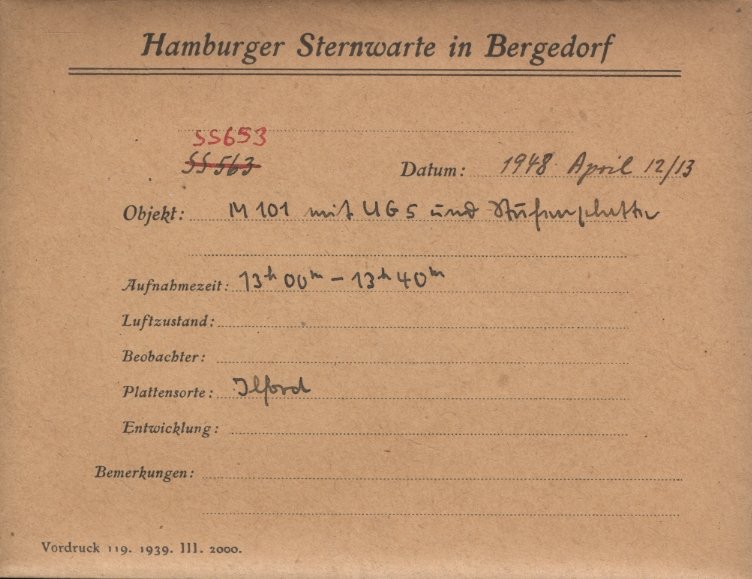 Hamburger Sternwarte in Bergedorf
SS653
SS563
Datum: 1948 April 12/13
Objekt: M 101 mit UG5 und Stufenplatte
Aufnahmezeit: 13h 00m – 13h 40m
Luftzustand:
Beobachter:
Plattensorte: Ilford
Entwicklung:
Bemerkungen:
Vordruck 119. 1939. III. 2000.